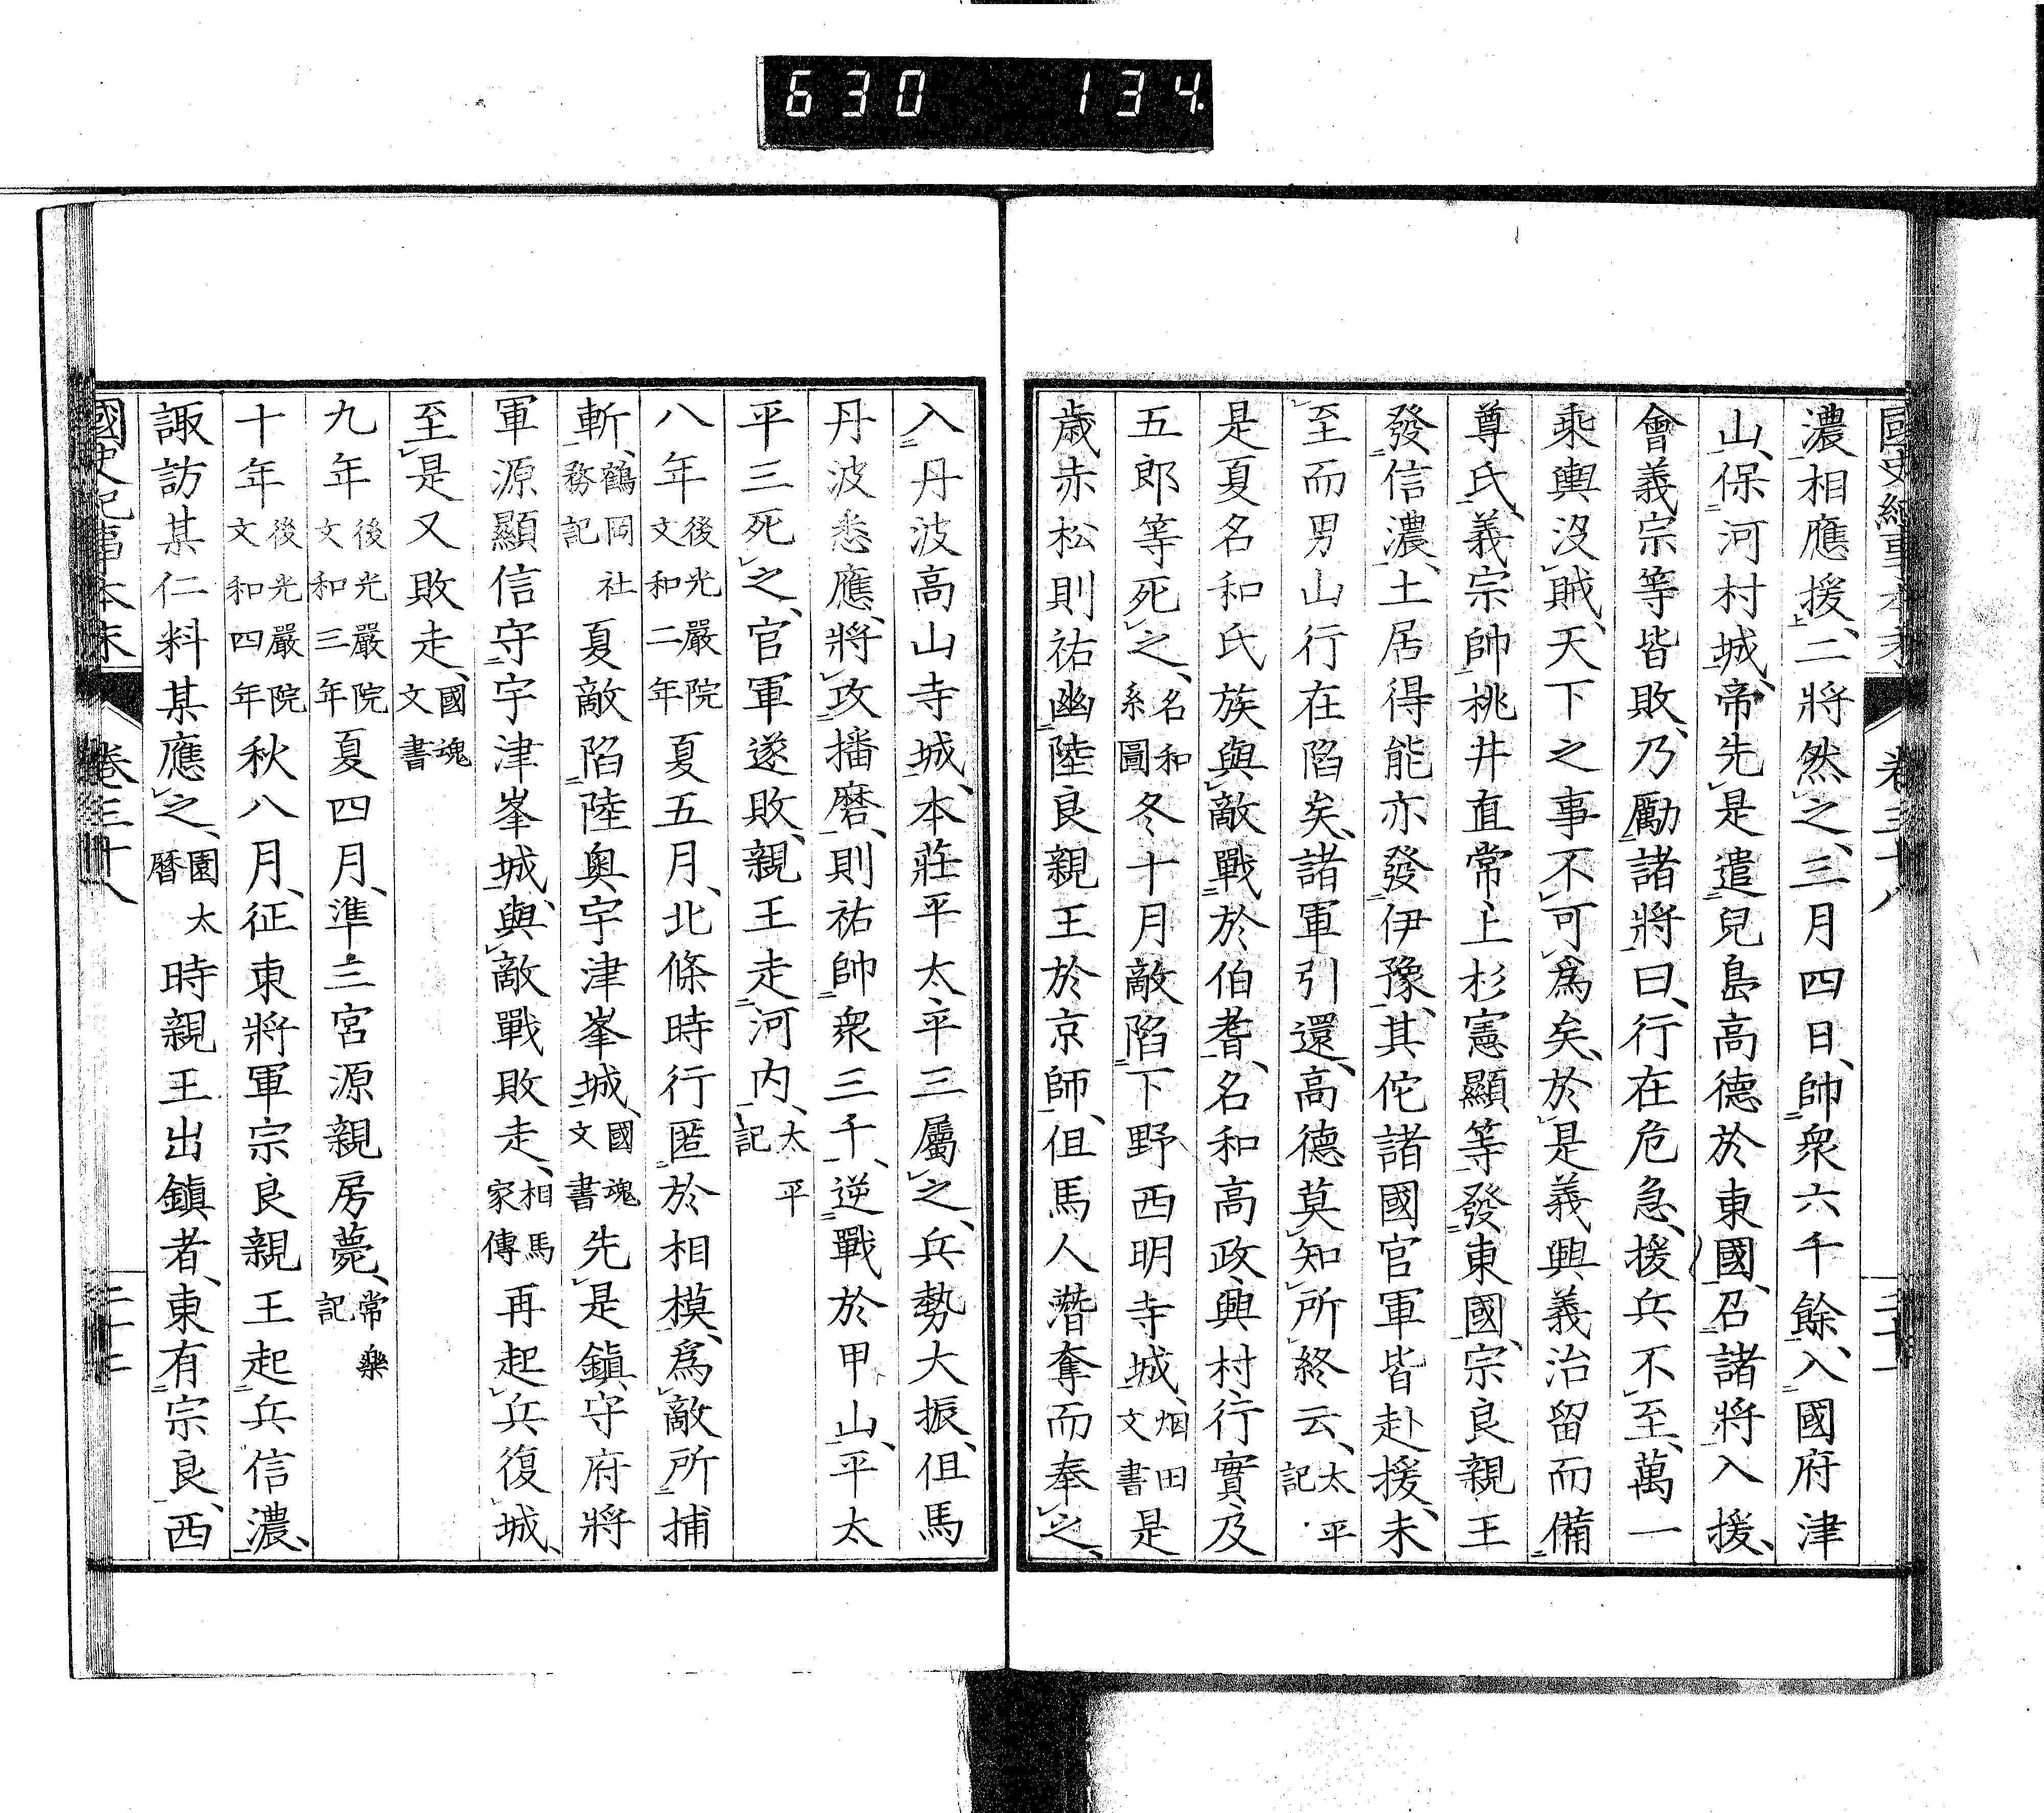 630 134
國史紀事本末 卷三十八
濃相應援、二將然之、三月四日、帥衆六千餘、入國府津
山、保河村城、帝先是遣兒島高德於東國、召諸將入援、
會義宗等皆敗、乃勵諸將曰、行在危急、援兵不至、萬一
乘輿沒賊、天下之事不可爲矣、於是義興義治留而備
尊氏、義宗帥桃井直常上杉憲顯等發東國、宗良親王
發信濃、土居得能亦發伊豫、其佗諸國官軍皆赴援、未
至而男山行在陷矣、諸軍引還、高德莫知所終云、太平記
是夏名和氏族與敵戰於伯耆、名和高政興村行實及
五郎等死之、名和系圖冬十月敵陷下野西明寺城、烟田文書是
歲赤松則祐幽陸良親王於京師、但馬人潛奪而奉之、
入丹波高山寺城、本莊平太平三屬之、兵勢大振、但馬
丹波悉應、將攻播磨、則祐帥衆三千、逆戰於甲山、平太
平三死之、官軍遂敗、親王走河内、太平記
八年後光嚴院文和二年夏五月、北條時行匿於相模、爲敵所捕
斬、鶴岡社務記夏敵陷陸奧宇津峯城、國魂文書先是鎮守府將
軍源顯信守宇津峯城、與敵戰敗走、相馬家傳再起兵復城、
至是又敗走、國魂文書
九年後光嚴院文和三年夏四月、準三宮源親房薨、常樂記
十年後光嚴院文和四年秋八月、征東將軍宗良親王起兵信濃、
諏訪某仁科某應之、園太曆時親王出鎮者、東有宗良、西
國史紀事本末 卷三十八